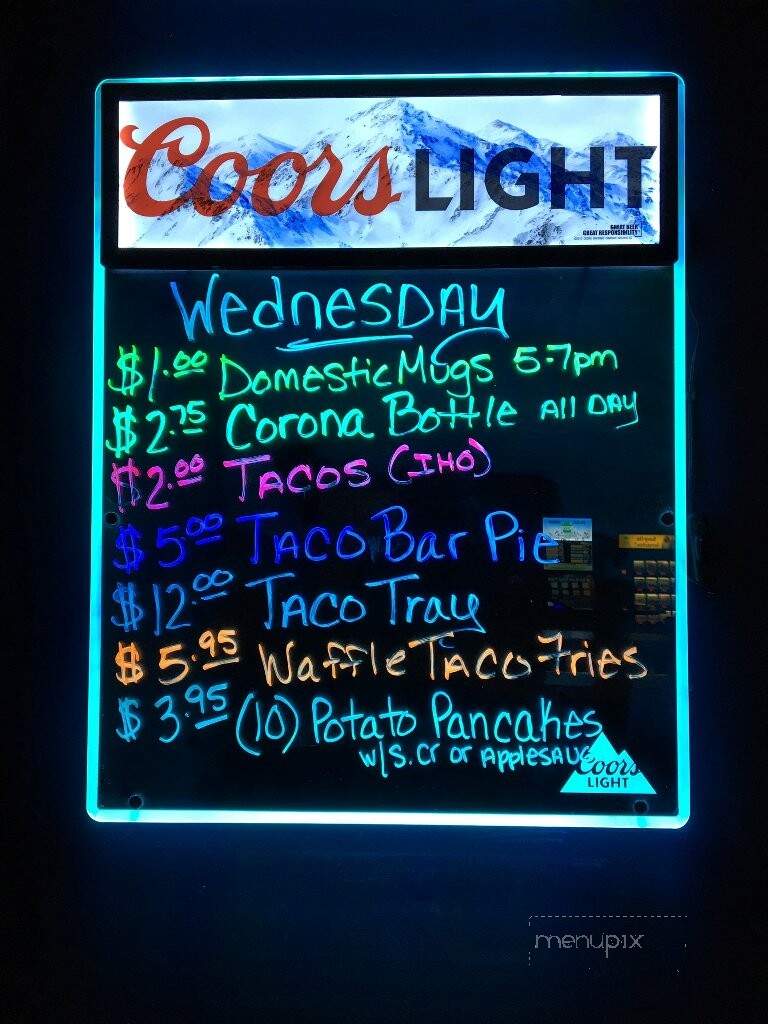 Coors LIGHT
GREAT BEER
GREAT RESPONSIBILITY
WednesDAY
$1.00 Domestic Mugs 5-7pm
$2.75 Corona Bottle All DAY
$2.00 TACOS (IHO)
$5.00 TACO Bar Pie
$12.00 TACO Tray
$5.95 Waffle TACO Fries
$3.95 (10) Potato Pancakes
w/S.Cr or ApplesAuc
Coors
LIGHT
menupix